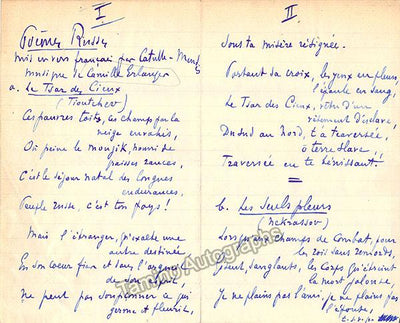 I
Poèmes Russes
mis en vers français par Catulle-Mendès
musique de Camille Erlanger
a. Le Tsar des Cieux
(Tioutchev)
Ces pauvres toits, ces champs par la
neige envahis,
Où peine le moujik, nourri de
paisses rances,
C'est le séjour natal des longues
endurances,
Peuple russe, c'est ton pays!
Mais l'étranger, qu'exalte une
autre destinée
En son cœur fier et sans l'argueil
de son esprit
Ne peut pas soupçonner ce qui
germe et fleurit,
II.
Sous ta misère résignée.
Portant sa croix, les yeux en pleurs,
l'épaule en sang,
Le Tsar des Cieux, vêtu d'un
vêtement d'esclave,
Du Sud au Nord, t'a traversée,
ô terre slave,
Traversée en te bénissant.
b. Les seuls pleurs
(Nekrassov)
Lorsqu'aux champs de combat, pour
les rois sans remords,
Gisent, sanglants, les corps qu'étreint
la mort jalouse,
Je ne plains pas l'ami, je ne plains pas
l'épouse,
Tamino Autographs